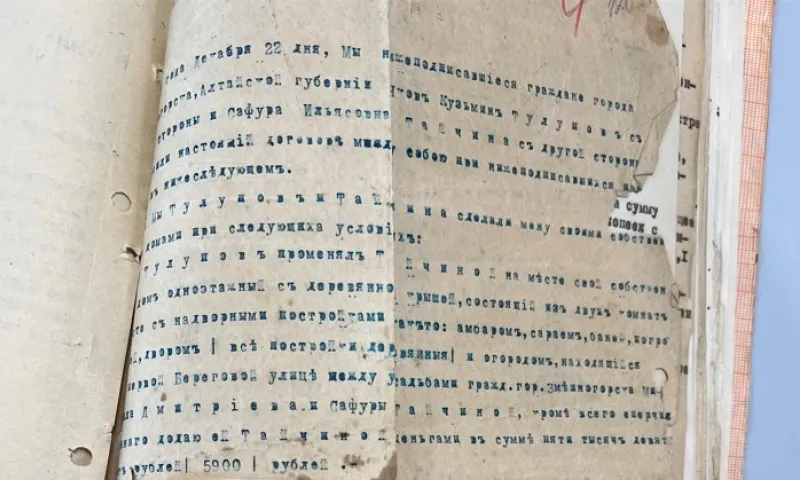 4
года Декабря 22 дня, Мы нижеподписавшіеся граждане города
горска, Алтайской губерніи Яковъ Кузьмичъ Тулуповъ съ
стороны и Сафура Ильясовна Тайчина съ другой стороны
настоящій договоръ между собою при нижеподписавшихся
въ нижеслѣдующемъ.
Мы Тулуповъ и Тайчина сдѣлали мену своими собствен
домами при следующиха условіяхъ:
Тулуповъ променялъ Тайчиной на месте свой собствен
домъ одноэтажный съ деревянной крышей, состоящій изъ двухъ комнатъ
съ надворными постройками какъто: амбаромъ, сараемъ, баней, погре
дворомъ | всѣ постройки деревянныя | и огородомъ, находящійся
первой Береговой улицѣ между усадьбами гражд. гор. Змѣиногорска Ми-
ла Дмитріева и Сафуры Тайчиной, кромѣ всего
додаю ей Тайчиной деньгами въ суммѣ пяти тысячъ девять
рублей | 5900 | рублей .-
сумму
опеек с